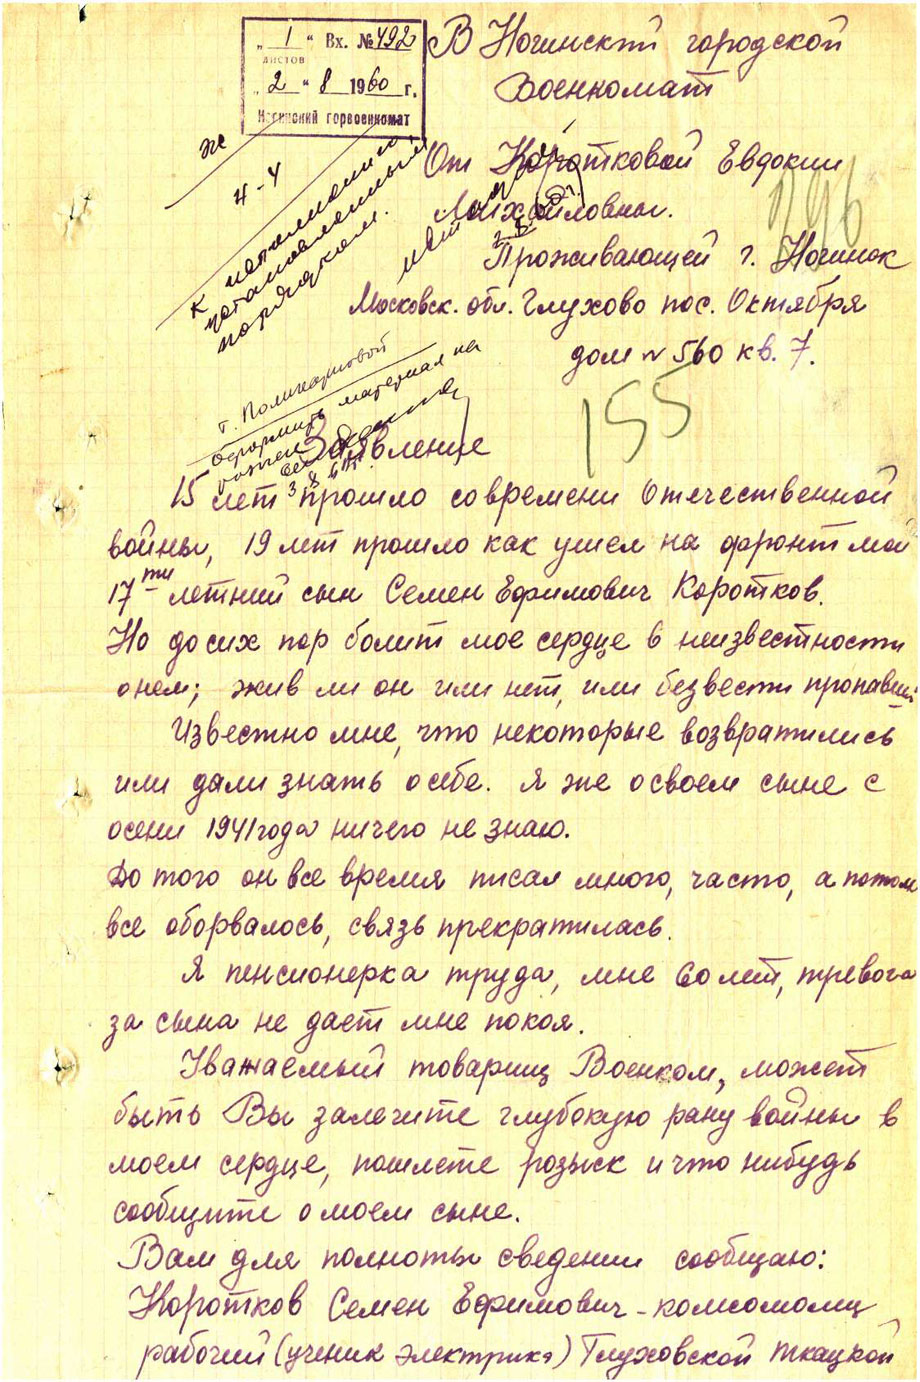 „1“ Вх. № 492
листов
„2“ 8 1960 г.
Ногинский горвоенкомат
В Ногинский городской
Военкомат
От Коротковой Евдокии
Михайловны.
Проживающей г. Ногинск
Московск. обл. Глухово пос. Октября
дом № 560 кв. 7.
4-4
к исполнению
установленным
порядком.
196
155
т. Поликарповой
оформить материал на
розыск
Заявление
15 лет прошло со времени Отечественной
войны, 19 лет прошло как ушел на фронт мой
17ти летний сын Семен Ефимович Коротков.
Но до сих пор болит мое сердце в неизвестности
о нем; жив ли он или нет, или безвести пропавший
Известно мне, что некоторые возвратились
или дали знать о себе. Я же о своем сыне с
осени 1941 года ничего не знаю.
До того он все время писал много, часто, а потом
все оборвалось, связь прекратилась.
Я пенсионерка труда, мне 60 лет, тревога
за сына не дает мне покоя.
Уважаемый товарищ Военком, может
быть Вы залечите глубокую рану войны в
моем сердце, пошлете розыск и что нибудь
сообщите о моем сыне.
Вам для полноты сведении сообщаю:
Коротков Семен Ефимович - комсомолец
рабочий (ученик электрика) Глуховской ткацкой